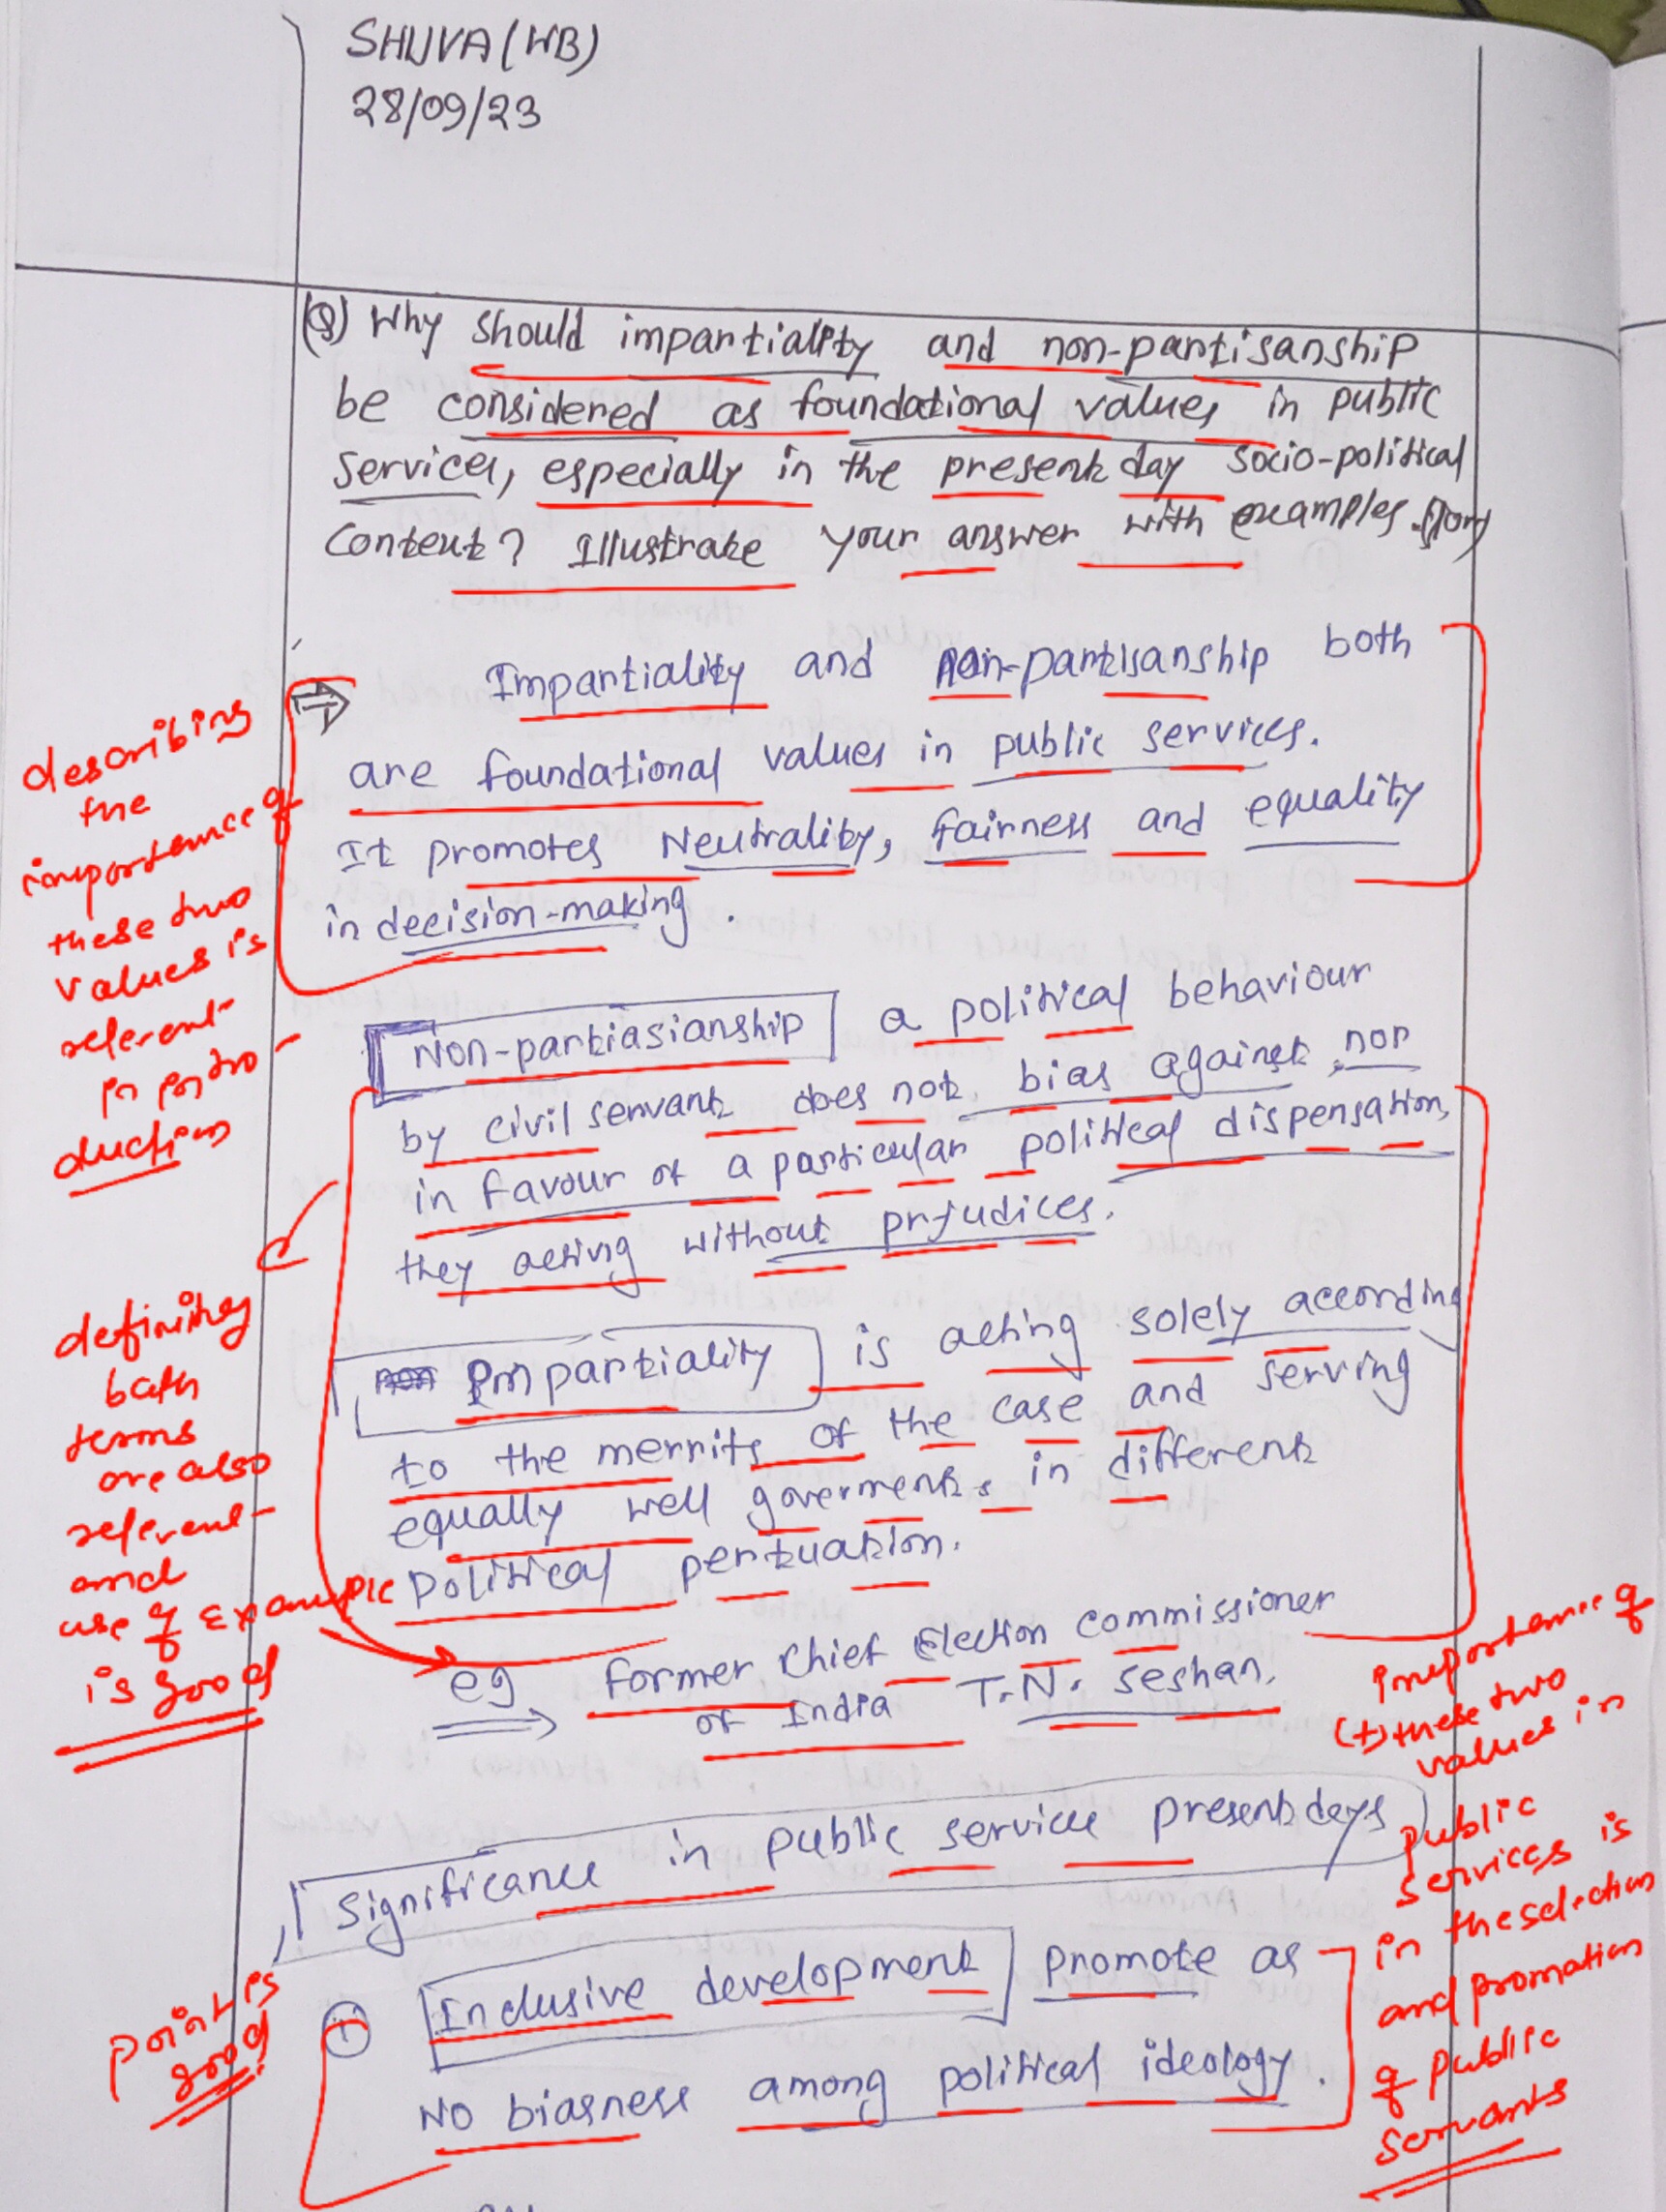 SHUVA (WB)
28/09/23
(Q) Why should impartiality and non-partisanship
be considered as foundational values in public
services, especially in the present day socio-political
context? Illustrate your answer with examples.
Impartiality and non-partisanship both
are foundational values in public services.
It promotes Neutrality, fairness and equality
in decision-making.
describing
the
importance of
these two
values is
relevant
in intro-
duction
Non-partiasianship a political behaviour
by civil servant does not bias against, nor
in favour of a particular political dispensation,
they acting without prjudices.
Impartiality is acting solely according
to the merrits of the case and serving
equally well goverments in different
Political pertuation.
eg former Chief Election Commissioner
of India T.N. Seshan.
defining
both
terms
are also
relevant
and
use of Example
is good
Significance in public service present days
① Inclusive development promote as
No biasness among political ideology.
point is
good
importance of
(t) these two
values in
public
services is
in the selection
and promotion
of public
servants